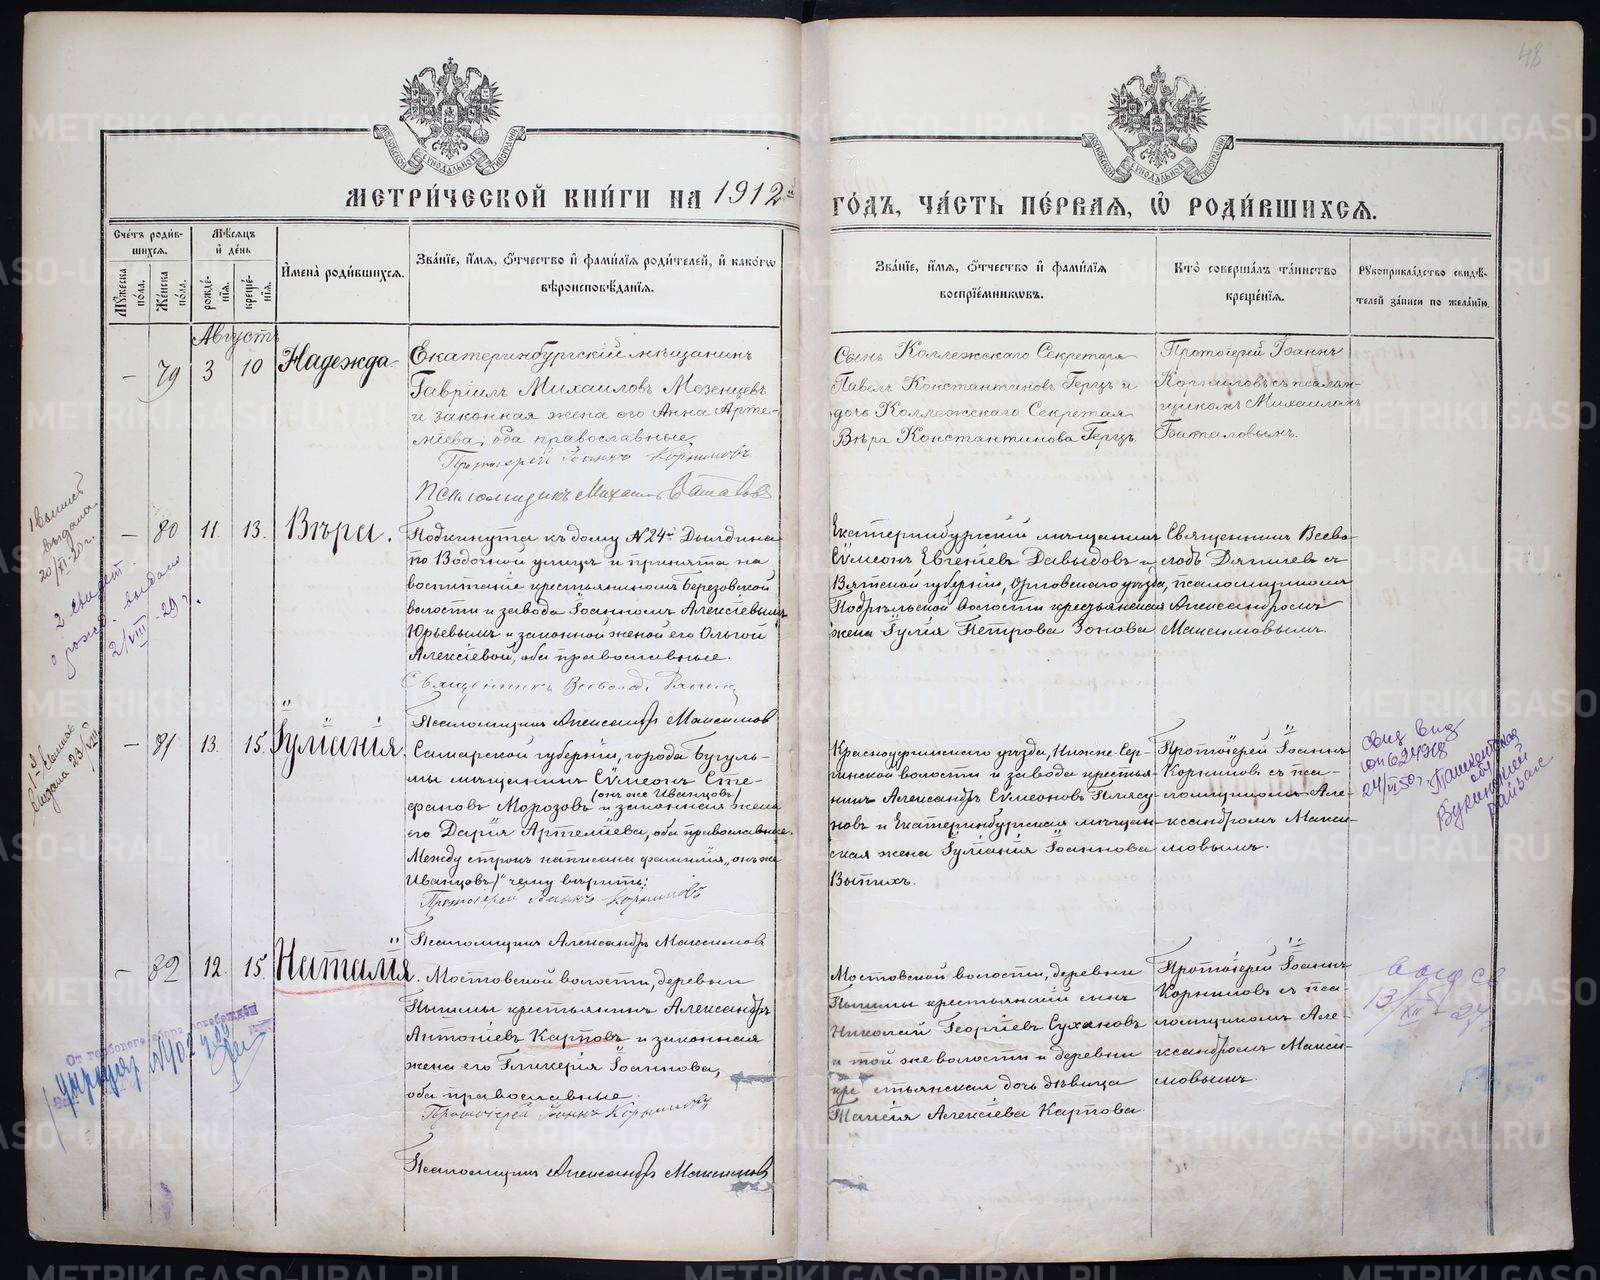 48
МЕТРИЧЕСКОЙ КНИГИ НА 1912й ГОДЪ, ЧАСТЬ ПЕРВАЯ, Ѡ РОДИВШИХСЯ.
Счетъ родив-
шихся.
Мужеска
пола.
Женска
пола.
Мѣсяцъ
и день
рожде-
нія.
креще-
нія.
Имена родившихся.
Званіе, имя, отчество и фамилія родителей, и какогѡ
вѣроисповѣданія.
Званіе, имя, отчество и фамилія
воспріемниковъ.
Кто совершалъ таинство
крещенія.
Рукоприкладство свидѣ-
телей записи по желанію.
Августъ
— 79 3 10 Надежда
Екатеринбургскій мѣщанинъ
Гавріилъ Михаиловъ Мезенцевъ
и законная жена его Анна Арте-
міева, оба православные
Протоіерей Іоаннъ Корниловъ
Псаломщикъ Михаилъ Баталовъ
Сынъ Коллежскаго Секретаря
Павелъ Константиновъ Герцъ и
дочь Коллежскаго Секретая
Вѣра Константинова Герцъ.
Протоіерей Іоаннъ
Корниловъ съ псалом-
щикомъ Михаиломъ
Баталовымъ.
— 80 11. 13. Вѣра.
Подкинута къ дому №24й Дылдина
по Водочной улицѣ и принята на
воспитаніе крестьяниномъ Березовской
волости и завода Іоанномъ Алексіевымъ
Юрьевымъ и законной женой его Ольгой
Алексіевой, оба православные.
Священникъ Всеволодъ
Псаломщикъ Александръ Максимов
Екатеринбургскій мѣщанинъ
Сѵмеонъ Евгеніевъ Давыдовъ и
Вятской губерніи, Орловскаго уѣзда,
Подрѣльской волости крестьянская
жена Іулія Петрова Зонова
Священникъ Всево-
лодъ Дягилев с
псаломщикомъ
Александромъ
Максимовымъ.
— 81 13. 15. Іуліанія.
Самарской губерніи, города Бугуль-
мы мѣщанинъ Сѵмеонъ Сте-
/онъ же Иванцовъ/
фановъ Морозовъ и законная жена
его Дарія Артеміева, оба православные.
Между строкъ написана фамилія „онъ же
Иванцовъ/" чему вѣрить:
Протоіерей Іоаннъ Корниловъ
Псаломщикъ Александръ Максимовъ
Красноуфимскаго уѣзда, Нижне-Сер-
гинской волости и завода крестья-
нинъ Александръ Сѵмеоновъ Пляcу-
новъ и Екатеринбургская мѣщан-
ская жена Іуліанія Іоаннова
Вытихъ.
Протоіерей Іоаннъ
Корниловъ съ пса-
ломщикомъ Але-
ксандромъ Макси-
мовымъ.
— 82 12. 15. Наталія
Мостовской волости, деревни
Пышмы крестьянинъ Александръ
Антоніевъ Карповъ и законная
жена его Гликерія Іоаннова,
оба православные.
Протоіерей Іоаннъ Корниловъ
Псаломщикъ Александръ Максимовъ
Мостовской волости, деревни
Пышмы крестьянскій сынъ
Николай Георгіевъ Сухановъ
и той же волости и деревни
крестьянская дочь дѣвица
Таисія Алексіева Карпова
Протоіерей Іоаннъ
Корниловъ съ пса-
ломщикомъ Але-
ксандромъ Макси-
мовымъ.
выдана
20/XI-20 г.
2 свидет.
о рожд. выдано
2/VIII-29 г.
выдана 23/VIII
24/VI 50 г. Ташкентская
13/XII-27
METRIKI.GASO-URAL.RU